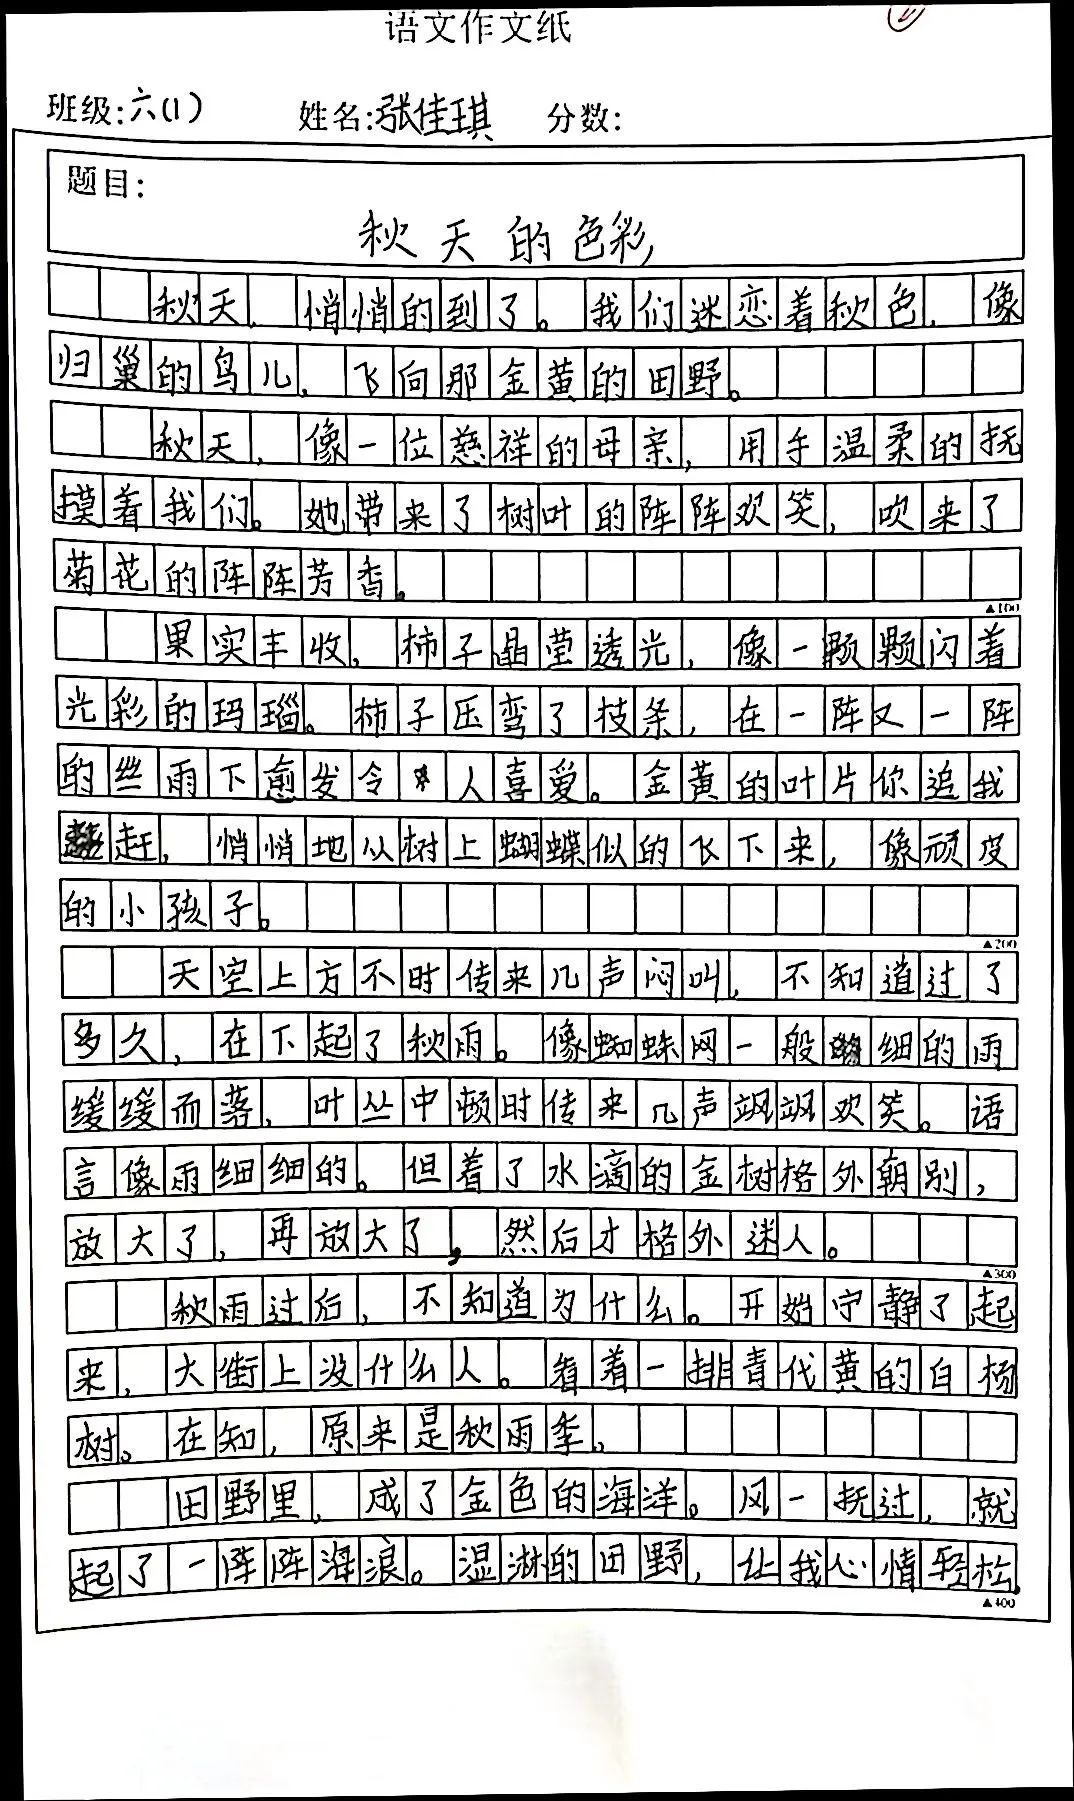 语文作文纸
班级:六(1) 姓名:张佳琪 分数:
题目:
秋天的色彩
秋天,悄悄的到了。我们迷恋着秋色,像
归巢的鸟儿,飞向那金黄的田野。
秋天,像一位慈祥的母亲,用手温柔的抚
摸着我们。她带来了树叶的阵阵欢笑,吹来了
菊花的阵阵芳香。
▲100
果实丰收,柿子晶莹透光,像一颗颗闪着
光彩的玛瑙。柿子压弯了技条,在一阵又一阵
的丝雨下愈发令人喜爱。金黄的叶片你追我
赶,悄悄地从树上蝴蝶似的飞下来,像顽皮
的小孩子。
▲200
天空上方不时传来几声闷叫,不知道过了
多久,在下起了秋雨。像蜘蛛网一般细的雨
缓缓而落,叶丛中顿时传来几声飒飒欢笑。语
言像雨细细的。但着了水滴的金树格外朝别,
放大了,再放大了,然后才格外迷人。
▲300
秋雨过后,不知道为什么。开始宁静了起
来,大街上没什么人。看着一排青代黄的白杨
树。在知,原来是秋雨季。
田野里,成了金色的海洋。风一抚过,就
起了一阵阵海浪。湿淋的田野,让我心情轻松。
▲400